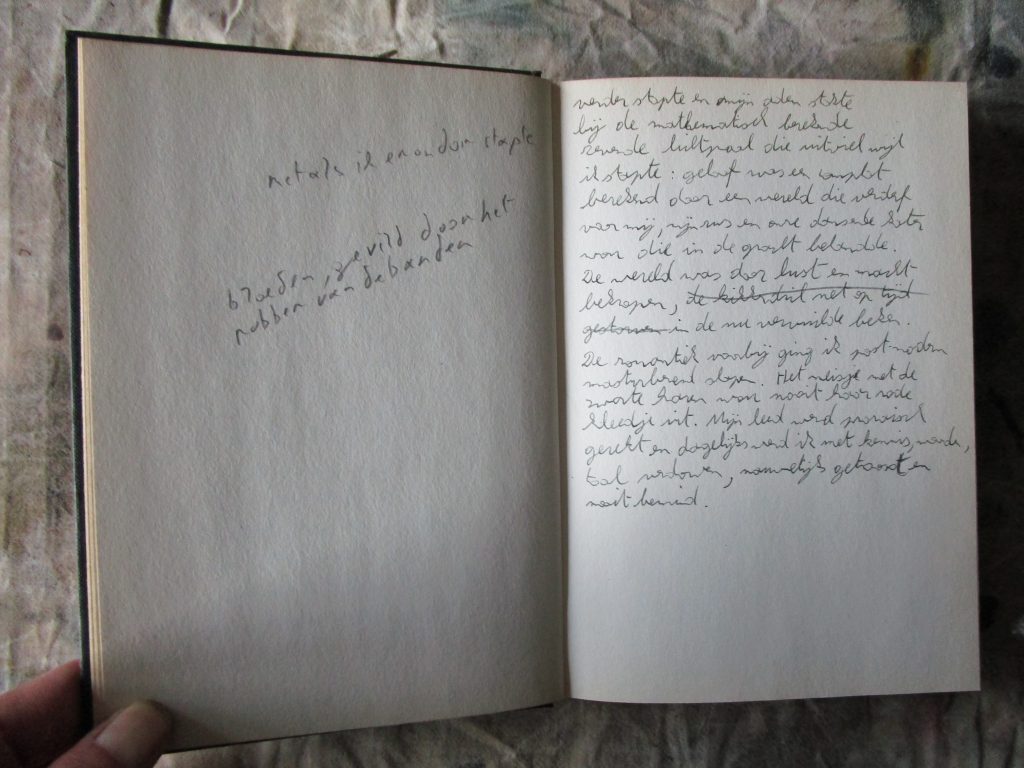 net als ik er en om stapte
bloeden, gevild door het
robben van de banden
verder stapte en mijn adem stokte
bij de mathematisch berekende
zevende lichtpaal die uitviel wijl
ik stapte: geloof was een complot
berekend door een wereld die verdief
voor mij, mijn en onze dansende
van die in de gracht belandde.
De wereld was door lust en macht
bekropen, de net op tijd
gestorven in de nu vervuilde beken.
De romantiek voorbij ging ik postmodern
slapen. Het meisje met de
zwarte haren was nooit haar rode
kleedje uit. Mijn leed werd
gerekt en dagelijks werd ik met kennis, woorden,
taal, nauwelijks getroost en
nooit bemind.